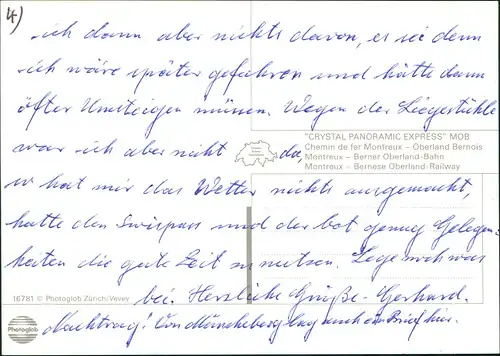 4)
ich dann aber nichts davon, es sei denn
ich wäre später gefahren und hätte dann
öfter Umsteigen müssen. Wegen der Liegestühle
war ich aber nicht da,
"CRYSTAL PANORAMIC EXPRESS" MOB
Chemin de fer Montreux – Oberland Bernois
Montreux – Berner Oberland-Bahn
Montreux – Bernese Oberland-Railway
so hat mir das Wetter nichts ausgemacht,
hatte den Swisspass und der bot genug Gelegen-
heiten die gute Zeit zu nutzen. Lege noch was
bei. Herzliche Grüße - Gerhard.
16781 © Photoglob Zürich/Vevey
Photoglob
Nachtrag! Von Müncheberg lag auch ein Brief hier.